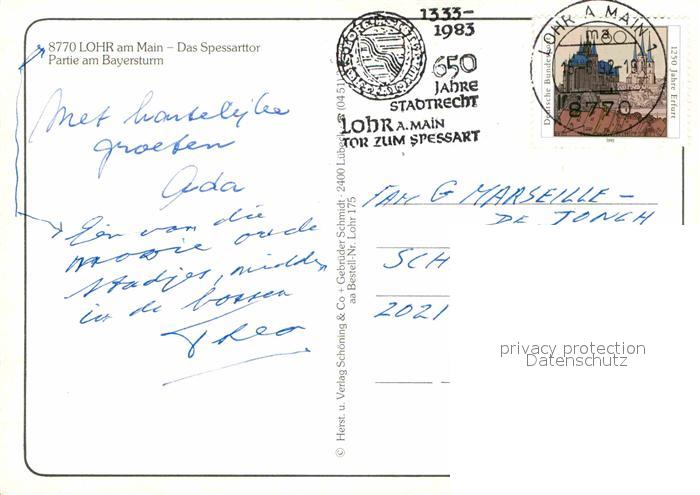 8770 LOHR am Main – Das Spessarttor
Partie am Bayersturm
Met hartelijke
groeten
Ada
Een van die
mooie oude
stadjes, midden
in de bossen
Theo
© Herst. u. Verlag Schöning & Co + Gebrüder Schmidt · 2400 Lübeck
aa Bestell-Nr. Lohr 175
1333–
1983
650
JAHRE
STADTRECHT
LOHR A. MAIN
TOR ZUM SPESSART
LOHR A. MAIN 1
ma
8770
Deutsche Bundespost
1250 Jahre Erfurt
FAM G MARSEILLE –
DE JONGH
SCH
2021
privacy protection
Datenschutz